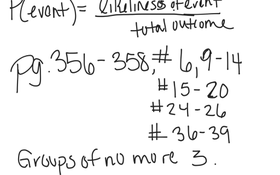 P(event) = likeliness of event
total outcome
pg. 356-358, # 6, 9-14
# 15-20
# 24-26
# 36-39
Groups of no more 3.